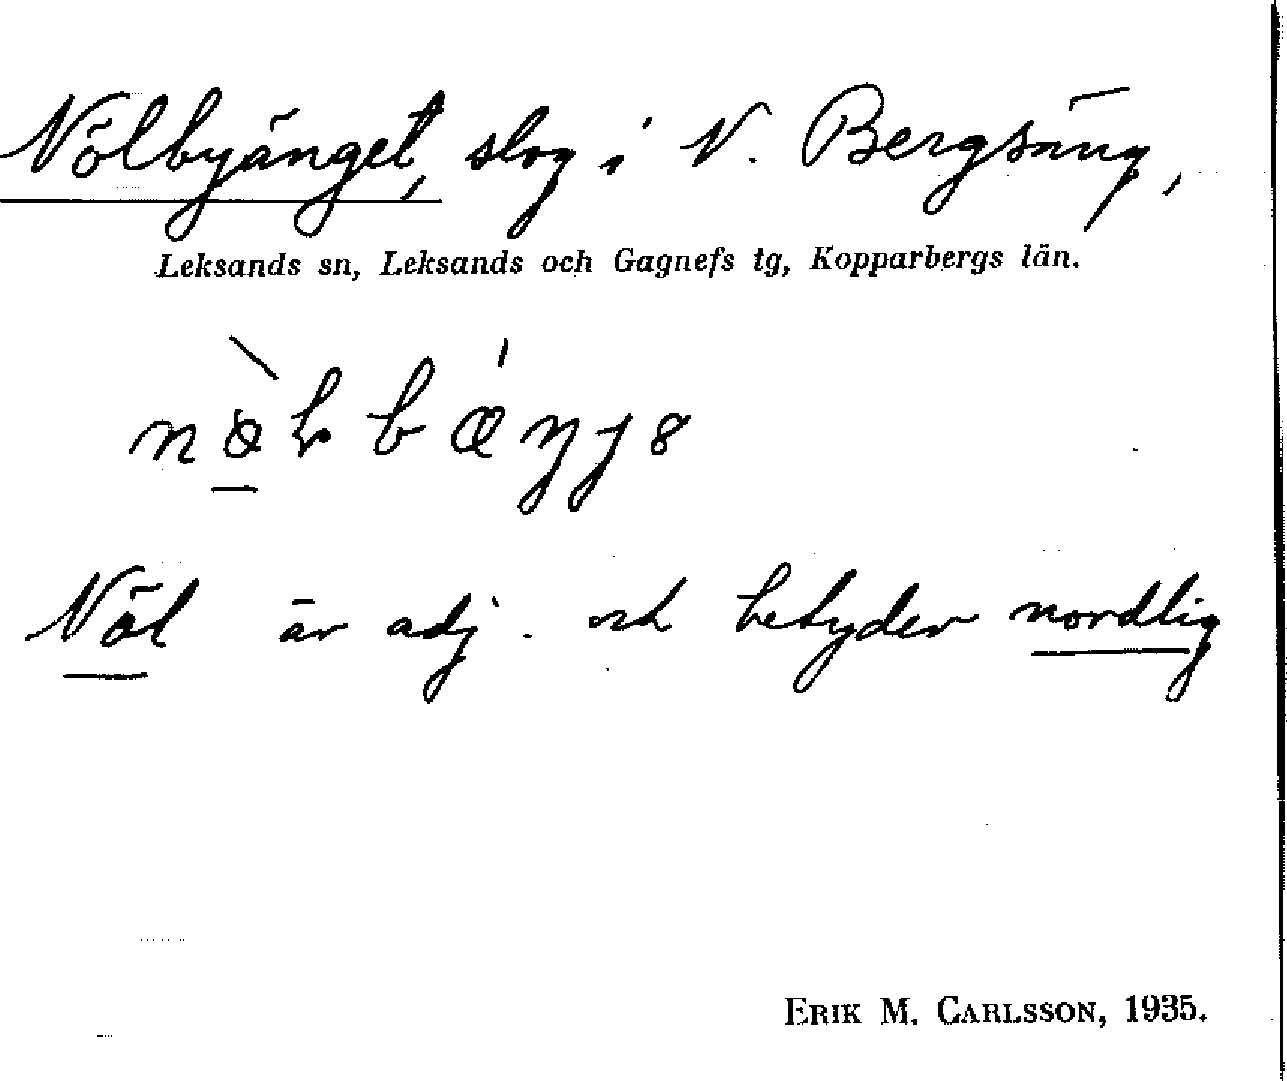 Nölbyänget, slog i N. Bergsäng,
Leksands sn, Leksands och Gagnefs tg, Kopparbergs län.
Nöl är adj. och betyder nordlig
ERIK M. CARLSSON, 1935.